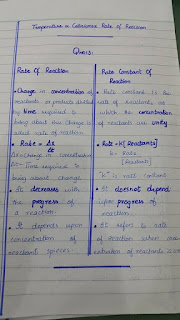 Temperature & Catalysis Rate of Reaction
Rate Of Reaction
Rate Constant Of
Reaction
• Change in concentration of
reactants or products divided
by time required to
bring about this change is
called rate of reaction.
• Rate = Δx
Δt
Δx = Change in concentration
Δt = Time required to
bring about change
• It decreases with
the progress of
a reaction.
• It depends upon
concentration of
reactant species.
• Rate constant is the
rate of reaction, at
which the concentration
of reactants are unity
• Rate = K[Reactants]
K = Rate
[Reactants]
"K" is rate constant
• It doesnot depend
upon progress of
reaction.
• It refers to rate
of reaction when